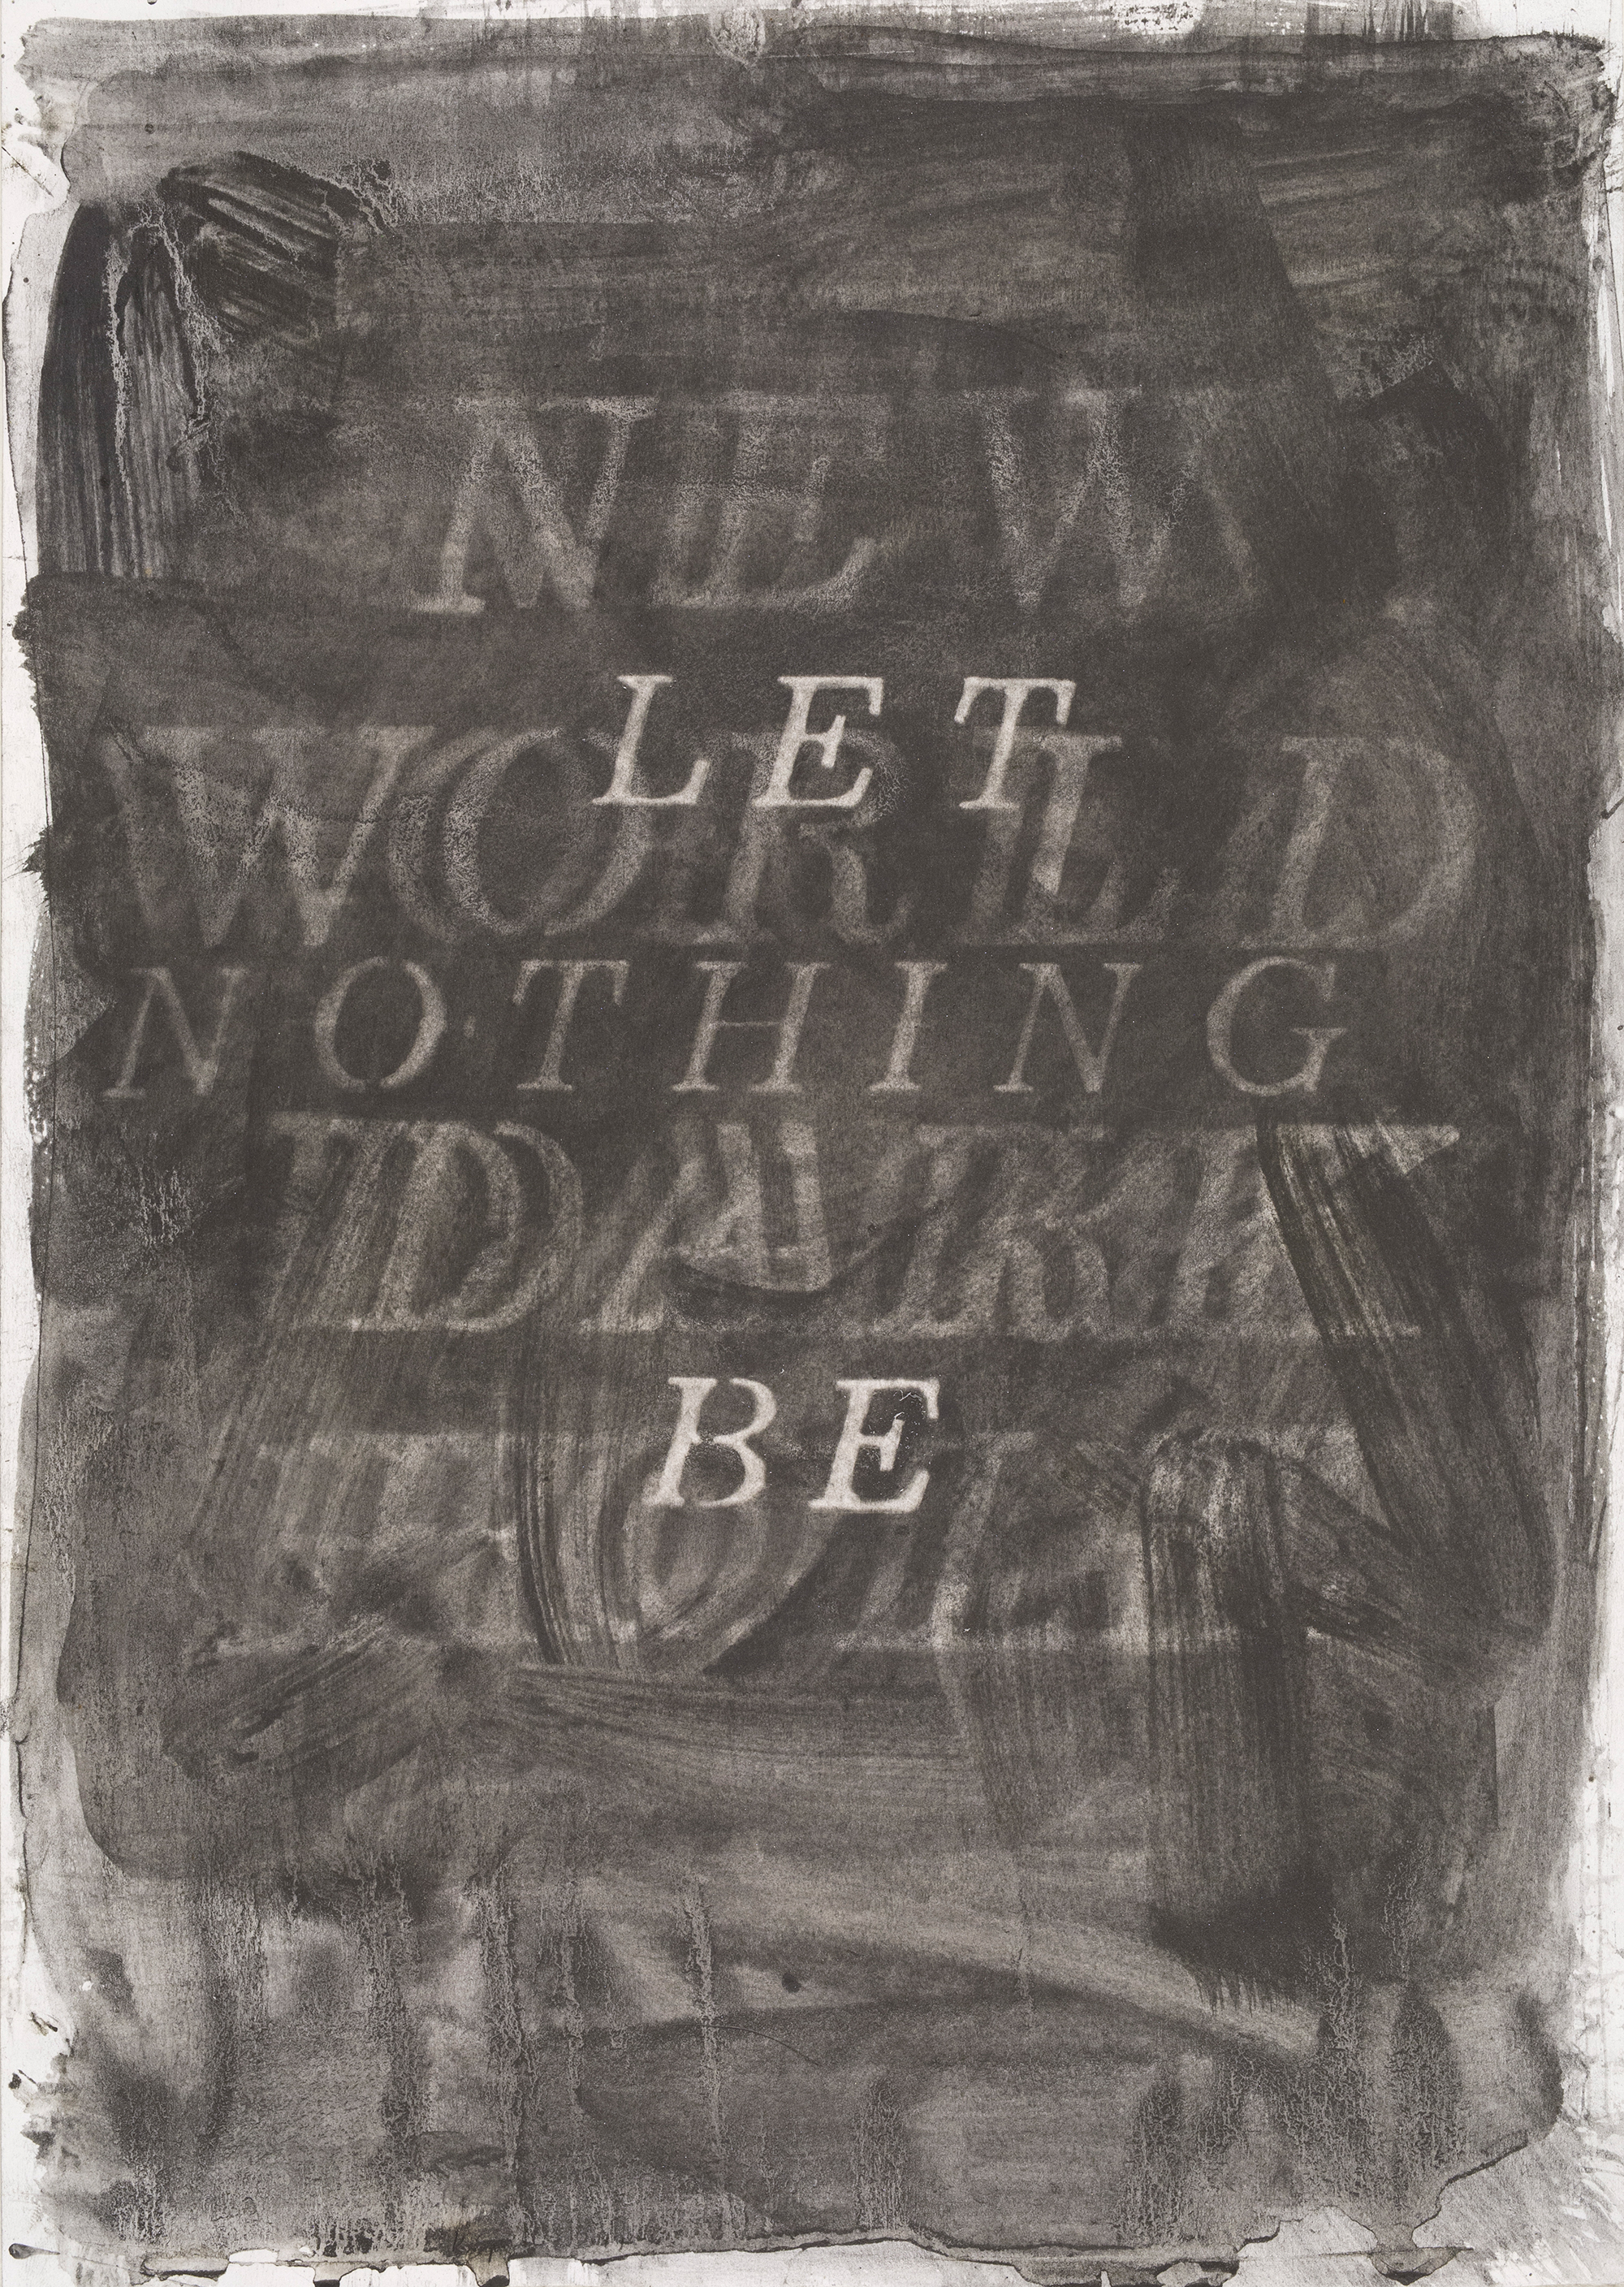 NEW
LET
WORLD
NOTHING
DARK
BE